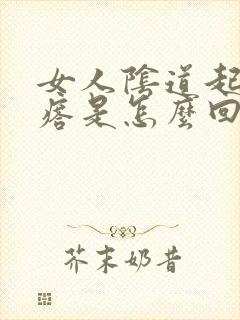 女人陰道起
痞是怎麼回
芥末奶昔